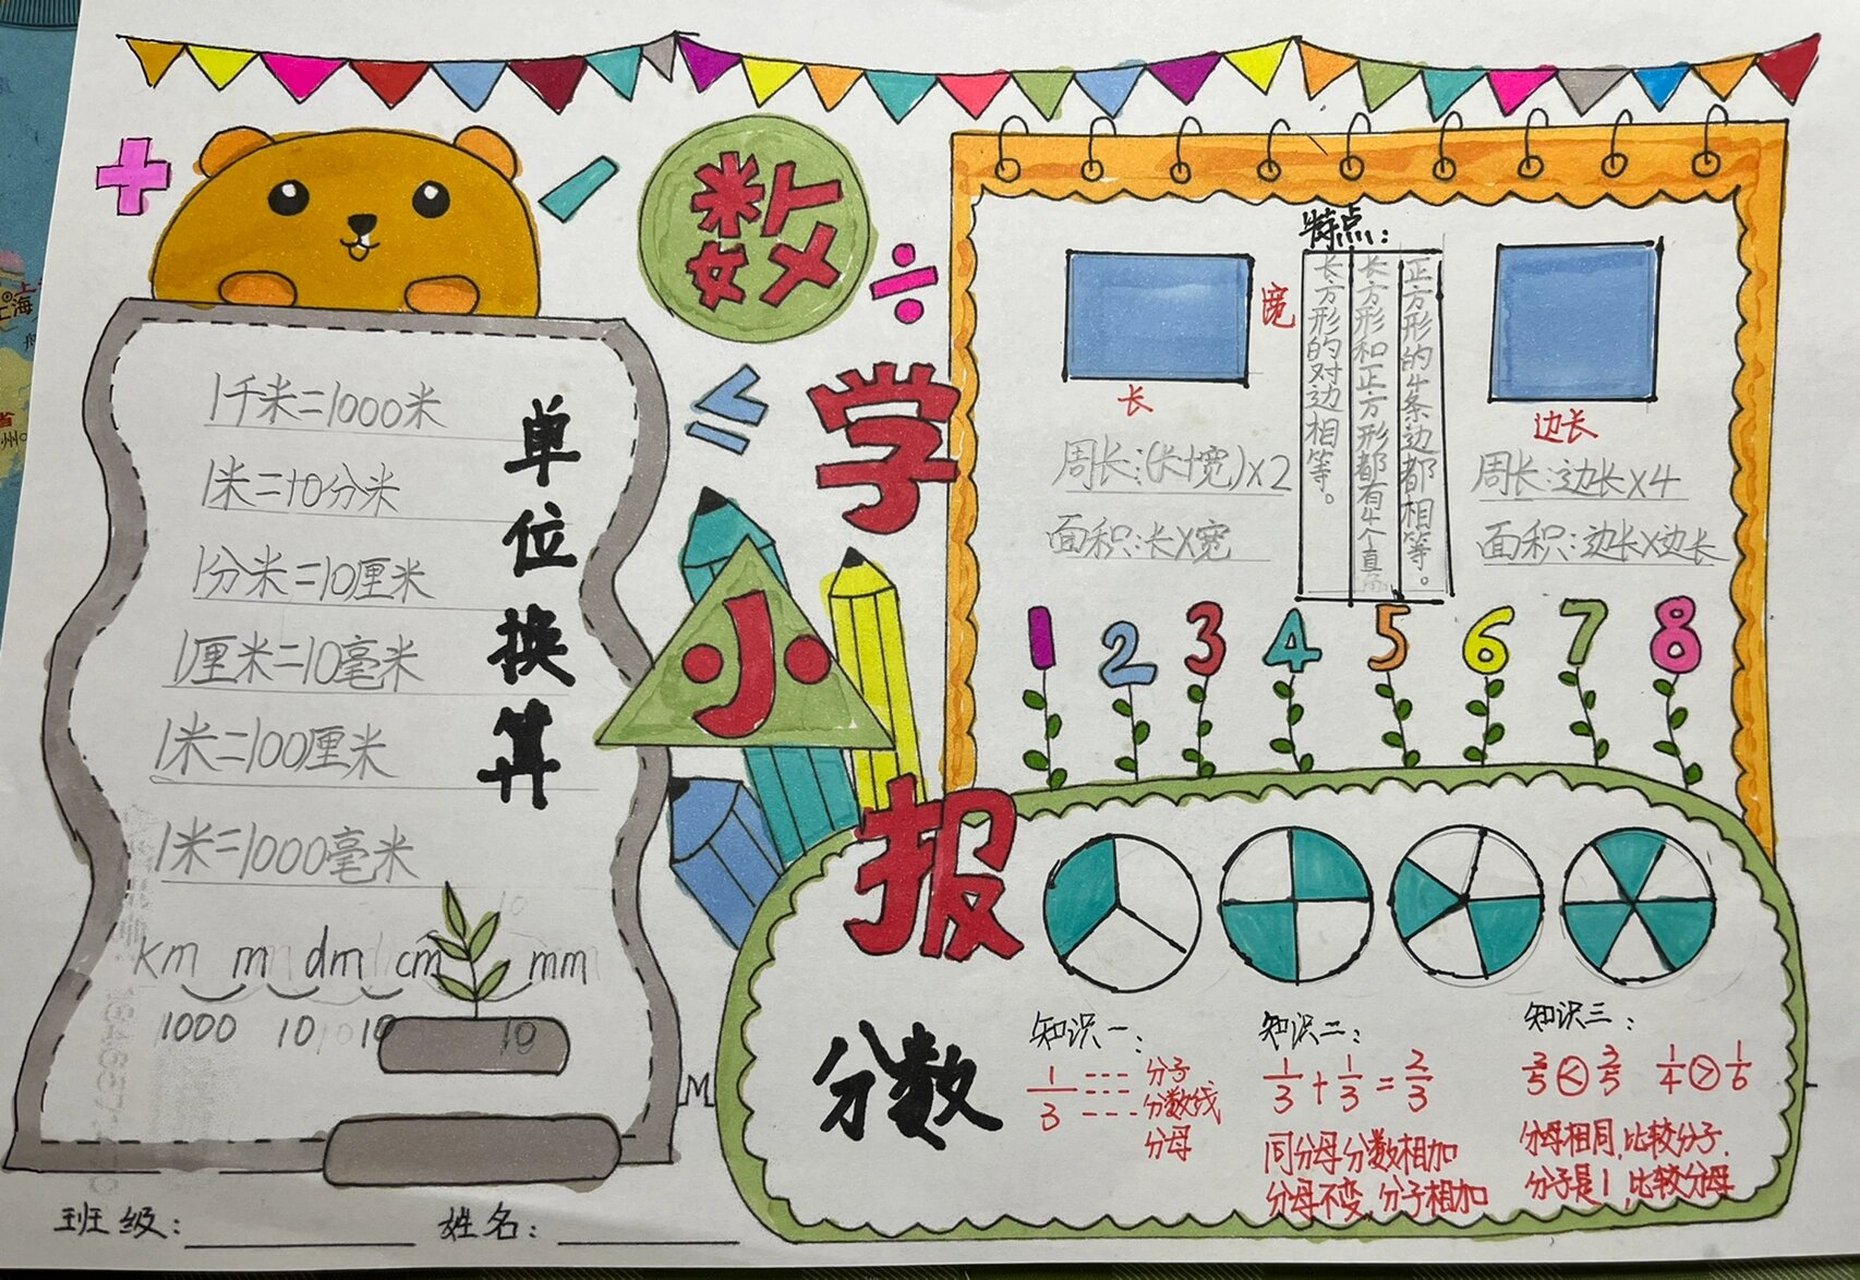 数学小报
单位换算
1千米=1000米
1米=10分米
1分米=10厘米
1厘米=10毫米
1米=100厘米
1米=1000毫米
km m dm cm mm
1000 10 10 10
班级:
姓名:
特点:
长方形的对边相等。
长方形和正方形都有4个直角
正方形的4条边都相等。
宽
长
周长:(长+宽)×2
面积:长×宽
边长
周长:边长×4
面积:边长×边长
1 2 3 4 5 6 7 8
分数
知识一:
1/3
分子
分数线
分母
知识二:
1/3+1/3=2/3
同分母分数相加
分母不变,分子相加
知识三:
1/4>1/6
分母相同,比较分子.
分子是1,比较分母